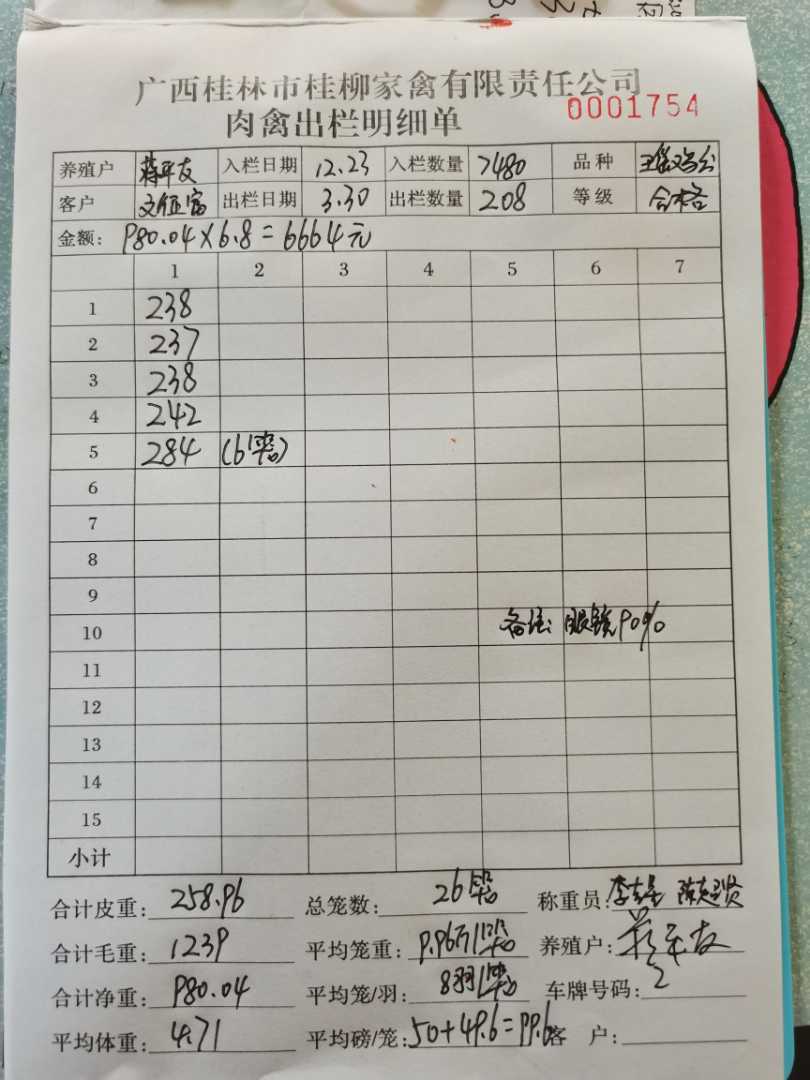 广西桂林市桂柳家禽有限责任公司
肉禽出栏明细单 0001754
养殖户 蒋平友 入栏日期 12.23 入栏数量 7480 品种
客户 出栏日期 3.30 出栏数量 208 等级 合格
金额: 980.04×6.8=6664元
1 2 3 4 5 6 7
1 238
2 237
3 238
4 242
5 284 (6笼)
6
7
8
9
10 备注: 眼镜90%
11
12
13
14
15
小计
合计皮重: 258.96 总笼数: 26笼 称重员:
合计毛重: 1239 平均笼重: 9.96斤/笼 养殖户: 蒋平友
合计净重: 980.04 平均笼/羽: 8羽/笼 车牌号码: 2
平均体重: 4.71 平均磅/笼: 50+49.6=99.6 客 户: